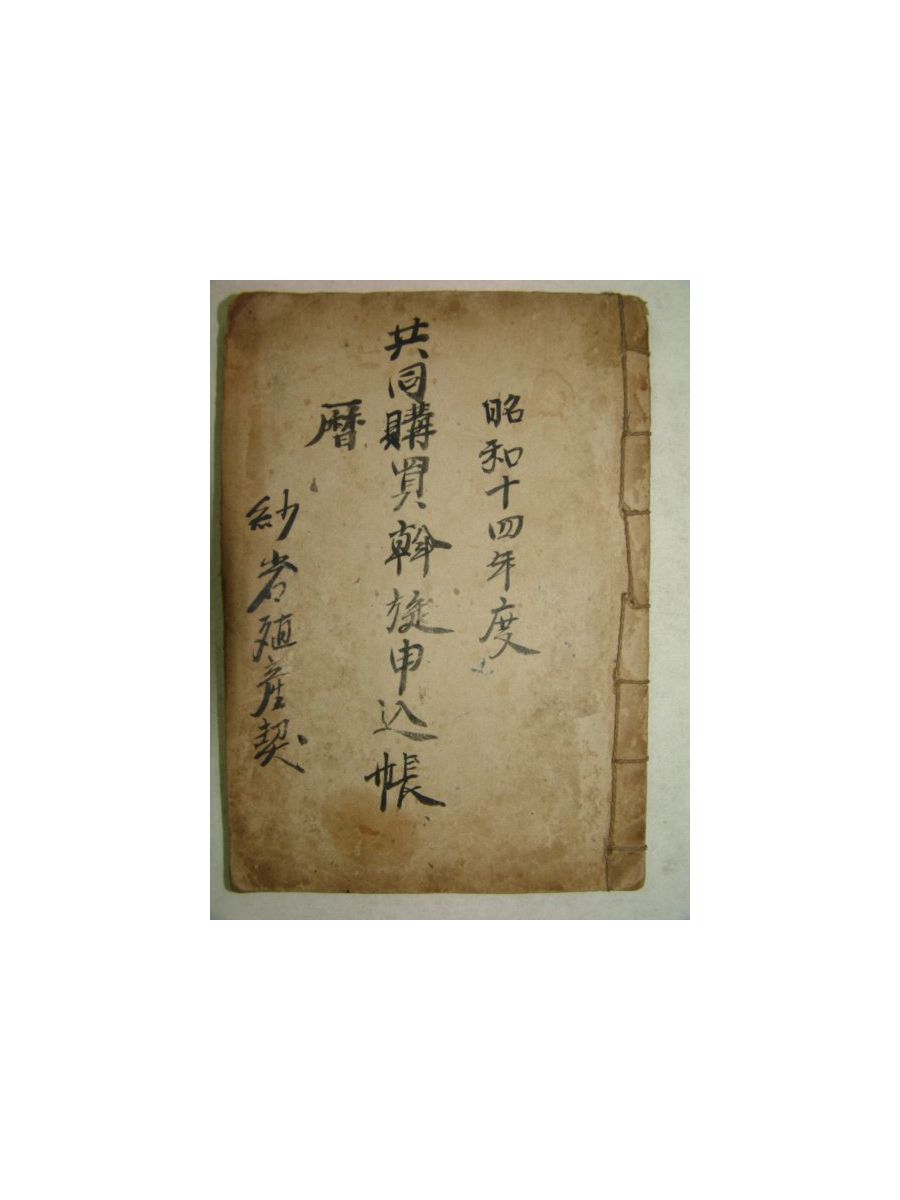 昭和十四年度
共同購買斡旋申込帳
曆
紗岩殖産契